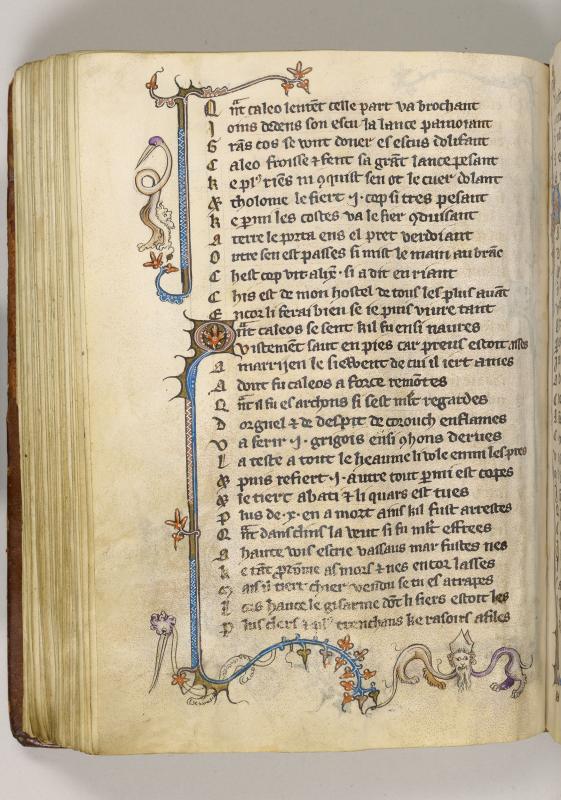 Q nt caleo lentent celle part va brochant
I oins dedens son escu la lance paumoiant
G rans cos se vont doner es escus dolifant
C aleo froisse & fent sa grant lance pesant
K e plꝰ riens ni ꝯquist sen ot le cuer dolant
& tholome le fiert ·i· cop si tres pesant
K e permi les costes va le fier ꝯduisant
A terre le porta ens el pret verdiant
O utre sen est passes si mist le main au branc
C hest cop vit alix̄ · si a dit en riant
C his est de mon hostel de tous les plus auāt
E ncor li ferai bien se ie puis viure tant
Q nt caleos se sent kil fu ensi naures
V istement saut en pies car preus estoit asses
A marrijen le siewent de cui il iert ames
A dont fu caleos a force remontes
Q nt il fu es archons si sest mlt regardes
D orguel & de despit de corouch enflames
V a ferir ·i· grigois ensi ꝯ hons derues
L a teste a tout le heaume li vole enmi les pres
& puis refiert ·i· autre tout permi est copes
& le tiert abati & li quars est tues
P lus de ·x· en a mort ains kil fust arrestes
Q nt danschins la veut si fu mlt effrees
A haute wis escrie vassaus mar fustes nes
K e tant as mors & nes encor lasses
M ais il iert chier vendu se tu es atrapes
L ors hauce le gisarme dōt li fiers estoit les
P lus clers & plꝰ trenchans ke rasoirs afiles